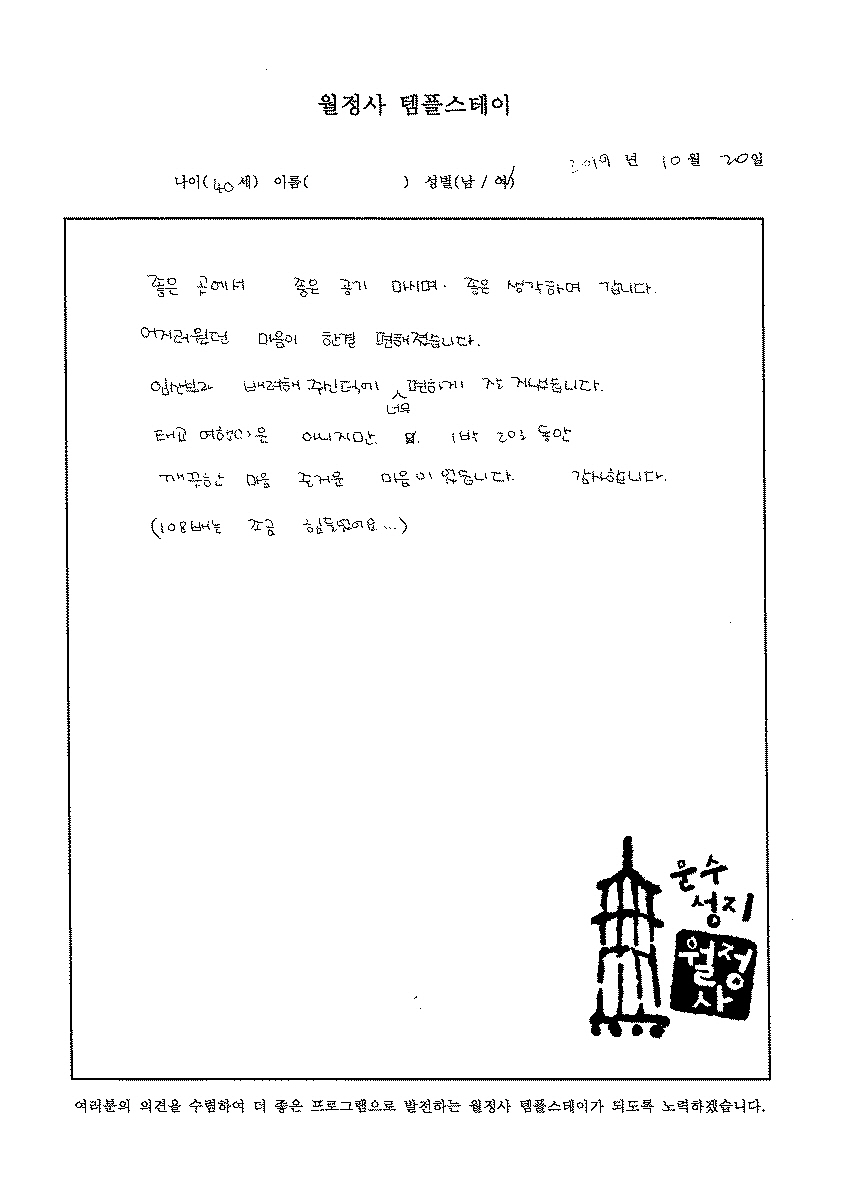 월정사 템플스테이
2019 년 10 월 20 일
나이( 40 세) 이름( ) 성별(남 / 여)
좋은 곳에서 좋은 공기 마시며. 좋은 생각하며 갑니다.
어지러웠던 마음이 한결 편해졌습니다.
임산부라 배려해 주신덕에 너무 편하게 잘 지냈습니다.
태교 여행은 아니지만. 1박 2일 동안
깨끗한 마음 즐거운 마음이었습니다. 감사합니다.
(108배는 조금 힘들었어요...)
문수
성지
월정
사
여러분의 의견을 수렴하여 더 좋은 프로그램으로 발전하는 월정사 템플스테이가 되도록 노력하겠습니다.